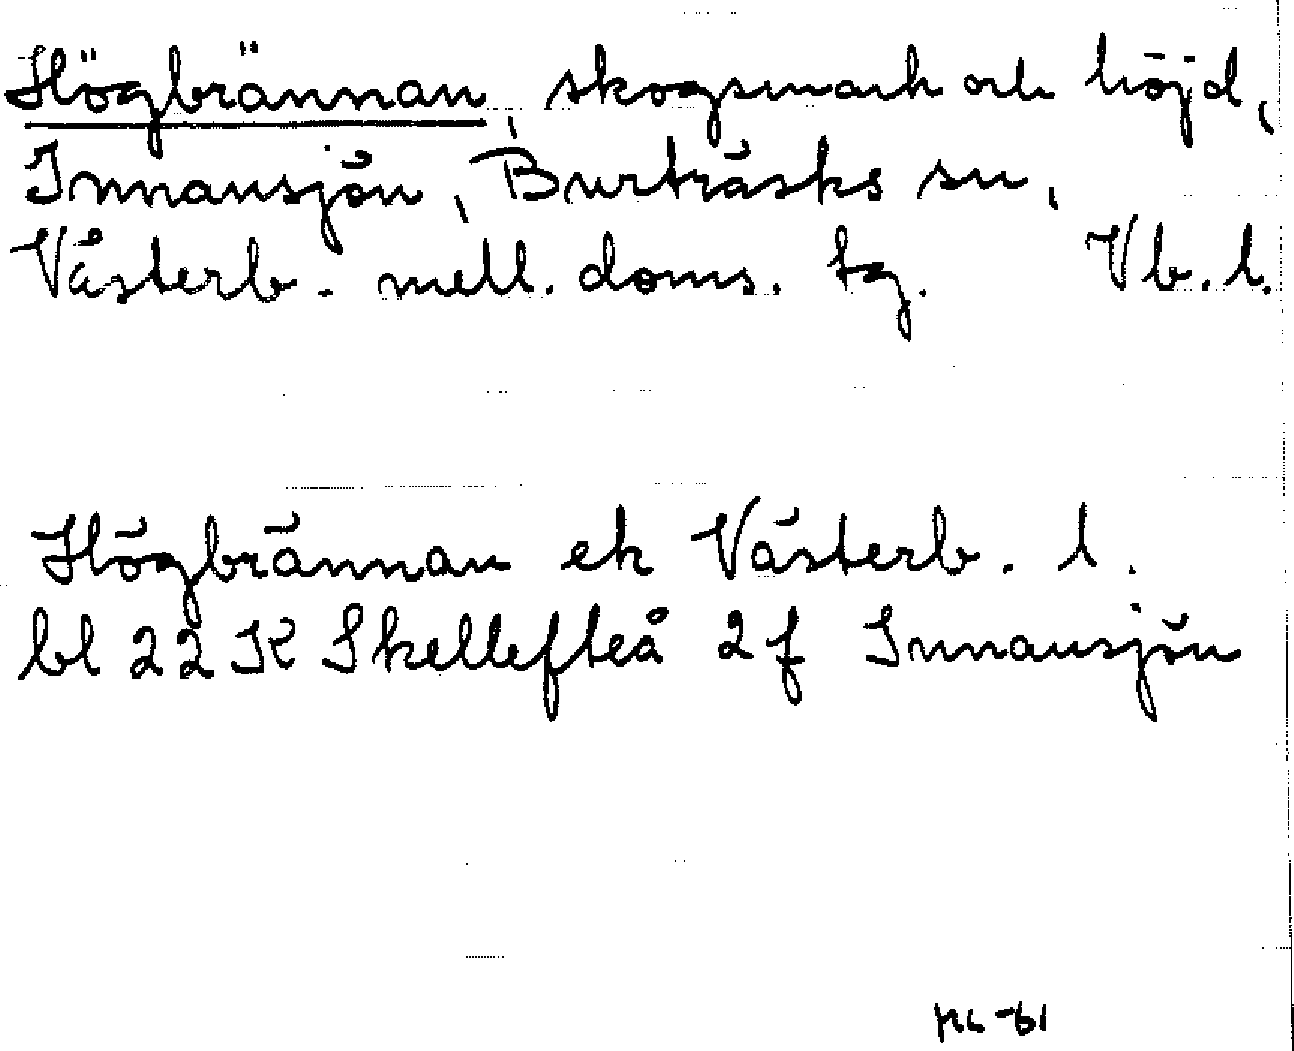 Högbrännan, skogsmark och höjd,
Innansjön, Burträsks sn,
Västerb. mell. doms. tg. Vb. l.
Högbrännan ek Västerb. l.
bl 22 K Skellefteå 2 f Innansjön